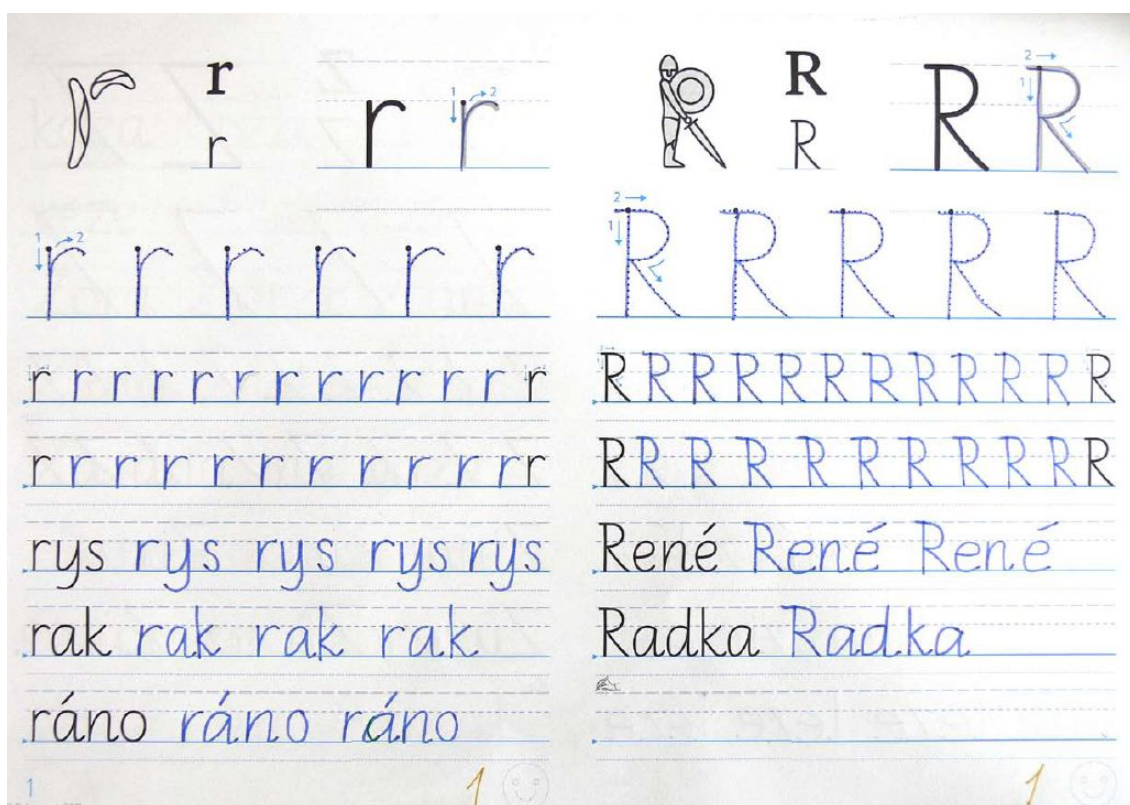 r
r
r r
1 2
1 2
r r r r r r
r r r r r r r r r r r r r
r r r r r r r r r r r r
rys rys rys rys rys
rak rak rak rak
ráno ráno ráno
1 1
R
R
R R
2
1
2
1
R R R R R
R R R R R R R R R R R R
R R R R R R R R R R R
René René René
Radka Radka
1